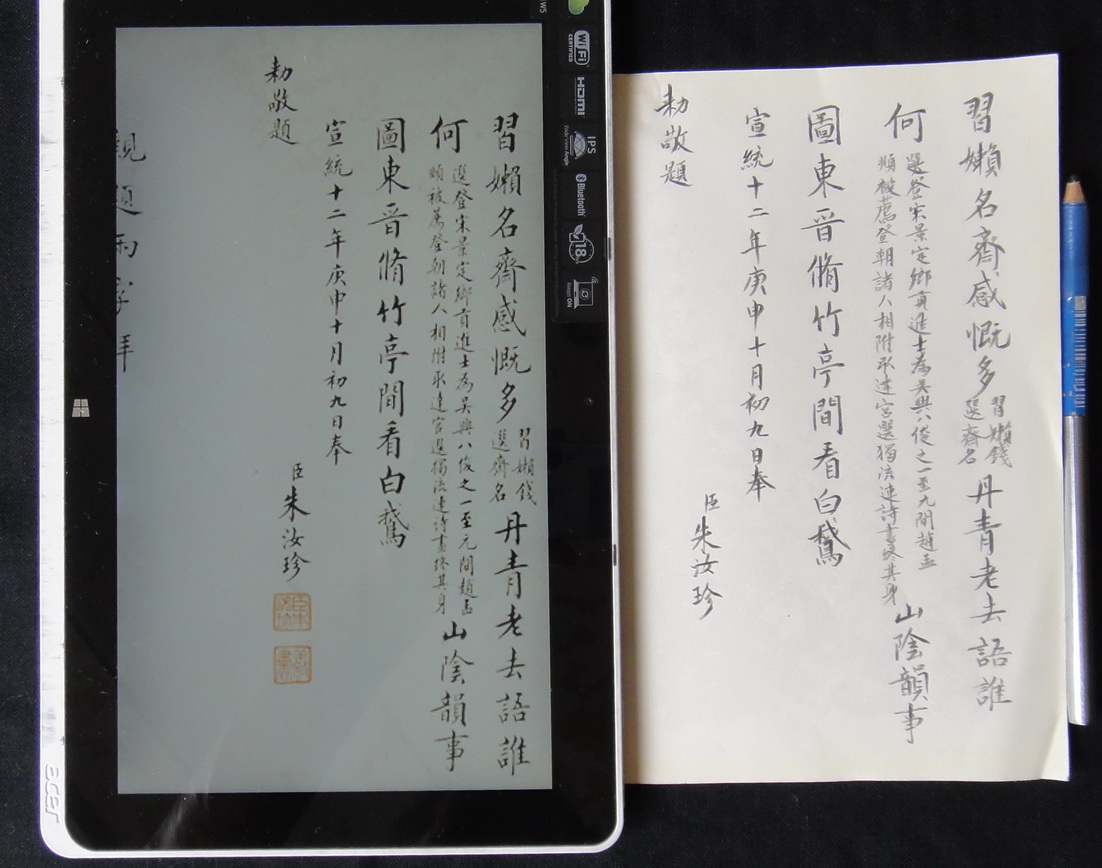 習嬾名齊感慨多
習嬾錢
選齊名
丹青老去語誰
何
選登宋景定鄉貢進士為吳興八俊之一至元間趙孟
頫被薦登朝諸人相附取達官選獨流連詩畫終其身
山陰韻事
圖東晉脩竹亭間看白鵞
宣統十二年庚申十月初九日奉
勅敬題
臣朱汝珍
親題兩字拜
習嬾名齊感慨多
習嬾錢
選齊名
丹青老去語誰
何
選登宋景定鄉貢進士為吳興八俊之一至九間趙孟
頫被薦登朝諸人相附取達官選獨流連詩畫終其身
山陰韻事
圖東晉脩竹亭間看白鵞
宣統十二年庚申十月初九日奉
勅敬題
臣朱汝珍
WiFi
CERTIFIED
HDMI
IPS
Wide View Angle
Bluetooth
18
Always ON
acer